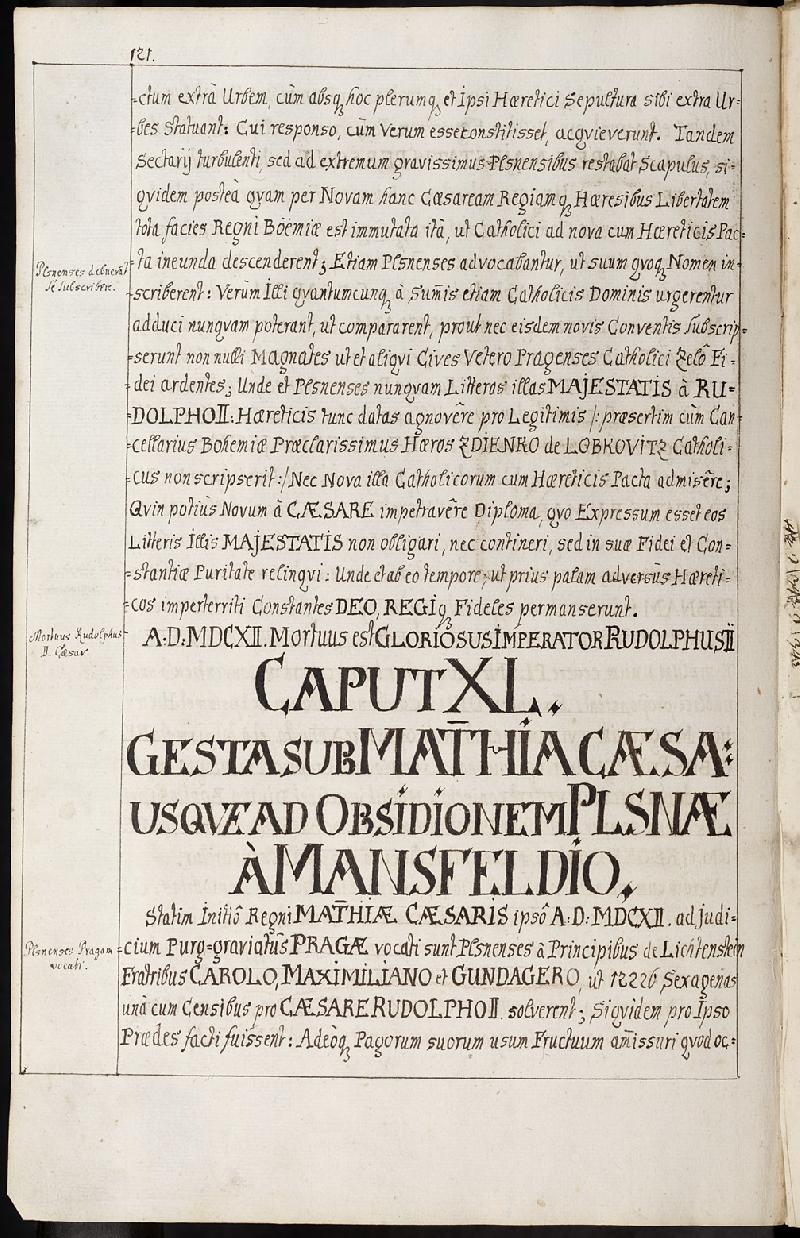 121.
-ctum extrà Urbem, cùm absq, hoc plerumq, et Ipsi Hæretici Sepultura sibi extra Ur-
-bes statuant: Cui responso, cùm Verum esse constitisset, acqvieverunt. Tandem
Sectarij turbulenti, sed ad extremum gravissimus Plsnensibus restabat Scapulus, si-
qvidem posteà qvam per Novam hanc Cæsaream Regiamq, Hæresibus Libertatem
tota facies Regni Boëmiæ est immutata ità, ut Catholici ad nova cum Hæreticis Pac-
Plsnenses
se subscribere.
-ta ineunda descenderent; Etiam Plsnenses advocabantur, ut suum qvoq, Nomen in-
-scriberent: Verùm Illi qvantumcunq, à Sum̄is etiam Catholicis Dominis urgerentur
adduci nunqvam poterant, ut compararent, prout nec eisdem novis Conventis subscrip-
-serunt non nulli Magnates ut et aliqvi Cives Vetero Pragenses Catholici Zelô Fi-
-dei ardentes; Unde et Plsnenses nunqvam Litteras illas MAJESTATIS à RU=
-DOLPHO II: Hæreticis tunc datas agnovêre pro Legitimis /: præsertim cùm Can-
-cellarius Bohemiæ Præclarissimus Hæros ZDIENKO de LOBKOVITZ Catholi-
-cus non scripserit :/ Nec Nova illa Catholicorum cum Hæreticis Pacta admisêre;
Qvin potiùs Novum à CÆSARE impetravêre Diploma, qvo Expressum esset eos
Litteris Illis MAJESTATIS non obligari, nec contineri, sed in suæ Fidei et Con=
-stantiæ Puritate relinqvi: Unde et ab eo tempore, ut prius palam adversùs Hæreti-
-cos imperterriti Constantes DEO, REGIq, Fideles permanserunt.
Mortuus Rudolphus
II. Cæsar
A:D:MDCXII. Mortuus est GLORIOSUS IMPERATOR RUDOLPHUS II
CAPUT XL.
GESTA SUB MATHIA CÆSA:
USQVE AD OBSIDIONEM PLSNÆ
À MANSFELDIO.
Statim Initiô Regni MATHIÆ CÆSARIS ipsô A:D:MDCXII. ad judi-
Plsnenses Pragam
vocati.
-cium Purg-graviatûs PRAGÆ vocati sunt Plsnenses à Principibus de Lichtenstein
Fratribus CAROLO, MAXIMILIANO et GUNDAGERO, ut 12226 Sexagenas
unà cum Censibus pro CÆSARE RUDOLPHO II. solverent; Siqvidem pro Ipso
Prædes facti fuissent: Adeòq, Pagorum suorum usum Fructuum am̄issuri qvod oc=